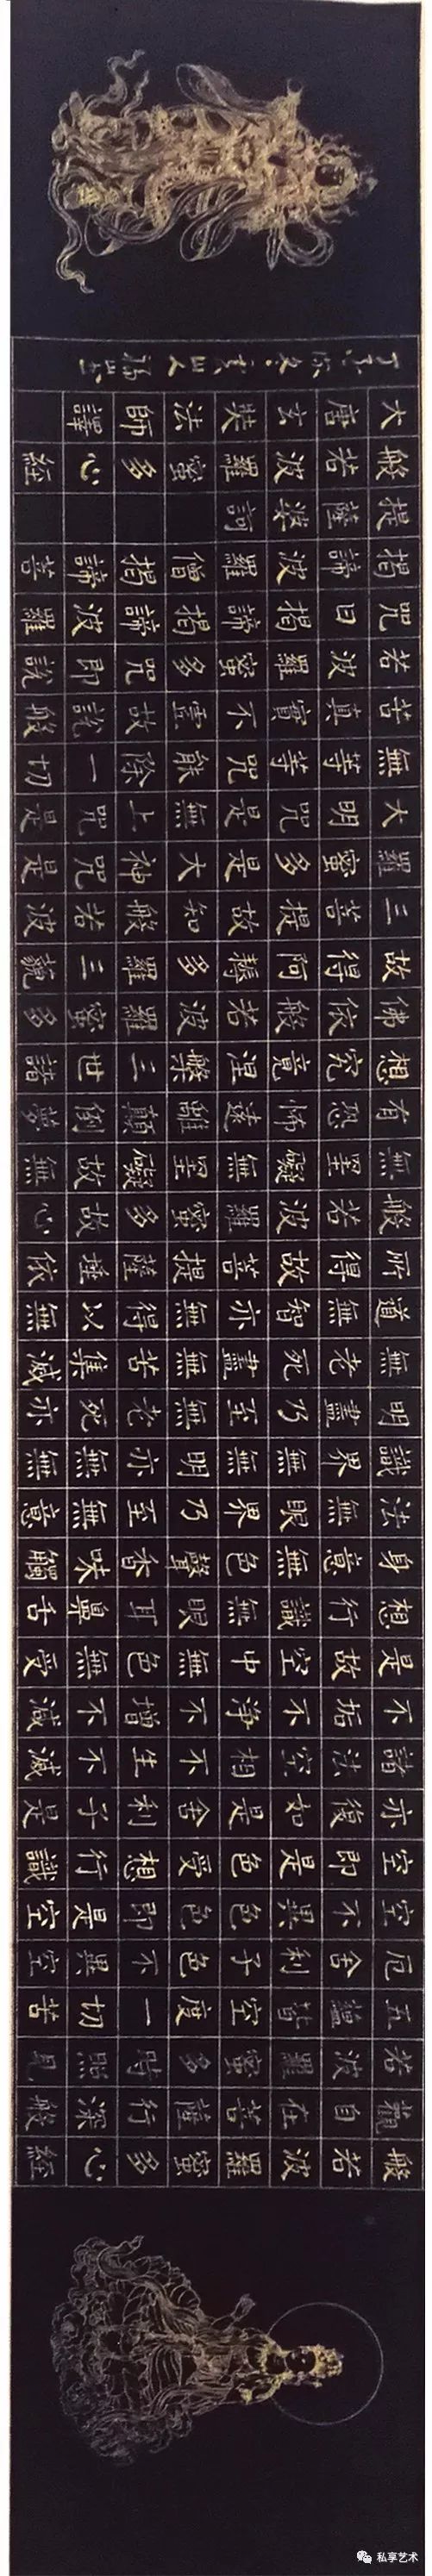 般若波羅蜜多心經
觀自在菩薩行深般
若波羅蜜多時照見
五蘊皆空度一切苦
厄舍利子色不異空
空不異色色即是空
空即是色受想行識
亦復如是舍利子是
諸法空相不生不滅
不垢不淨不增不減
是故空中無色無受
想行識無眼耳鼻舌
身意無色聲香味觸
法無眼界乃至無意
識界無無明亦無無
明盡乃至無老死亦
無老死盡無苦集滅
道無智亦無得以無
所得故菩提薩埵依
般若波羅蜜多故心
無罣礙無罣礙故無
有恐怖遠離顛倒夢
想究竟涅槃三世諸
佛依般若波羅蜜多
故得阿耨多羅三藐
三菩提故知般若波
羅蜜多是大神咒是
大明咒是無上咒是
無等等咒能除一切
苦真實不虛故說般
若波羅蜜多咒即說
咒曰揭諦揭諦波羅
揭諦波羅僧揭諦菩
提薩婆訶
般若波羅蜜多心經
大唐玄奘法師譯
私享艺术